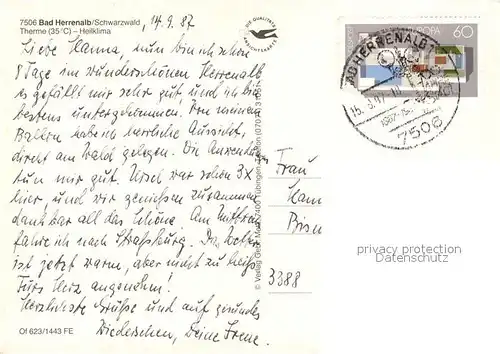 7506 Bad Herrenalb/Schwarzwald
Therme (35°C) – Heilklima
14.9.87
DIE QUALITÄTS ANSICHTSKARTE
Liebe Hanna, nun bin ich schon
8 Tage im wunderschönen Herrenalb
es gefällt mir sehr gut und ich bin
bestens untergekommen. Von meinem
Balkon habe ich herrliche Aussicht,
direkt am Wald gelegen. Die
tun mir gut. Ursel war schon 3x
hier, und wir genießen zusammen
dankbar all das Schöne. Am Mittwoch
fahre ich nach Straßburg. Das Wetter
ist jetzt warm, aber nicht zu heiß
fürs Herz angenehm!
Herzlichste Grüße und auf gesundes
Wiedersehen, Deine Irene.
Of 623/1443 FE
© Verlag 7400 Tübingen, Telefon
EUROPA 60
HERRENALB 1
7506
Frau
Han
3388
privacy protection
Datenschutz